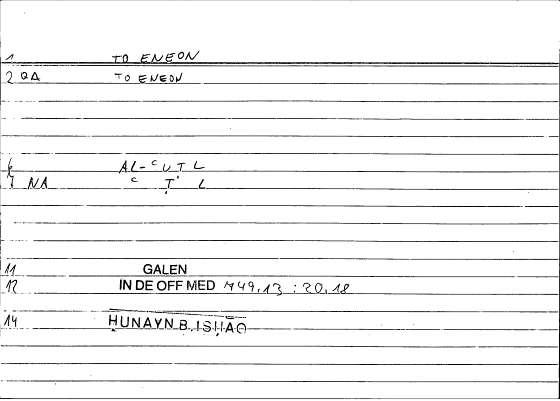 1 TO ENEON
2 QA TO ENEON
6 AL-ʿUTL
7 NA ʿ Ṭ L
11 GALEN
12 IN DE OFF MED M49,13 : 20,18
14 ḤUNAYN B. ISḤĀQ